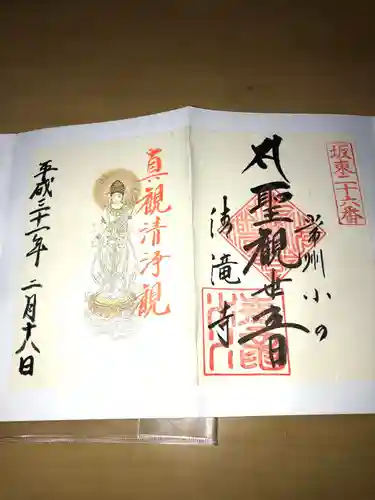 坂東二十六番
常州小の
奉聖観世音
清滝寺
真観清浄観
平成三十一年二月十六日